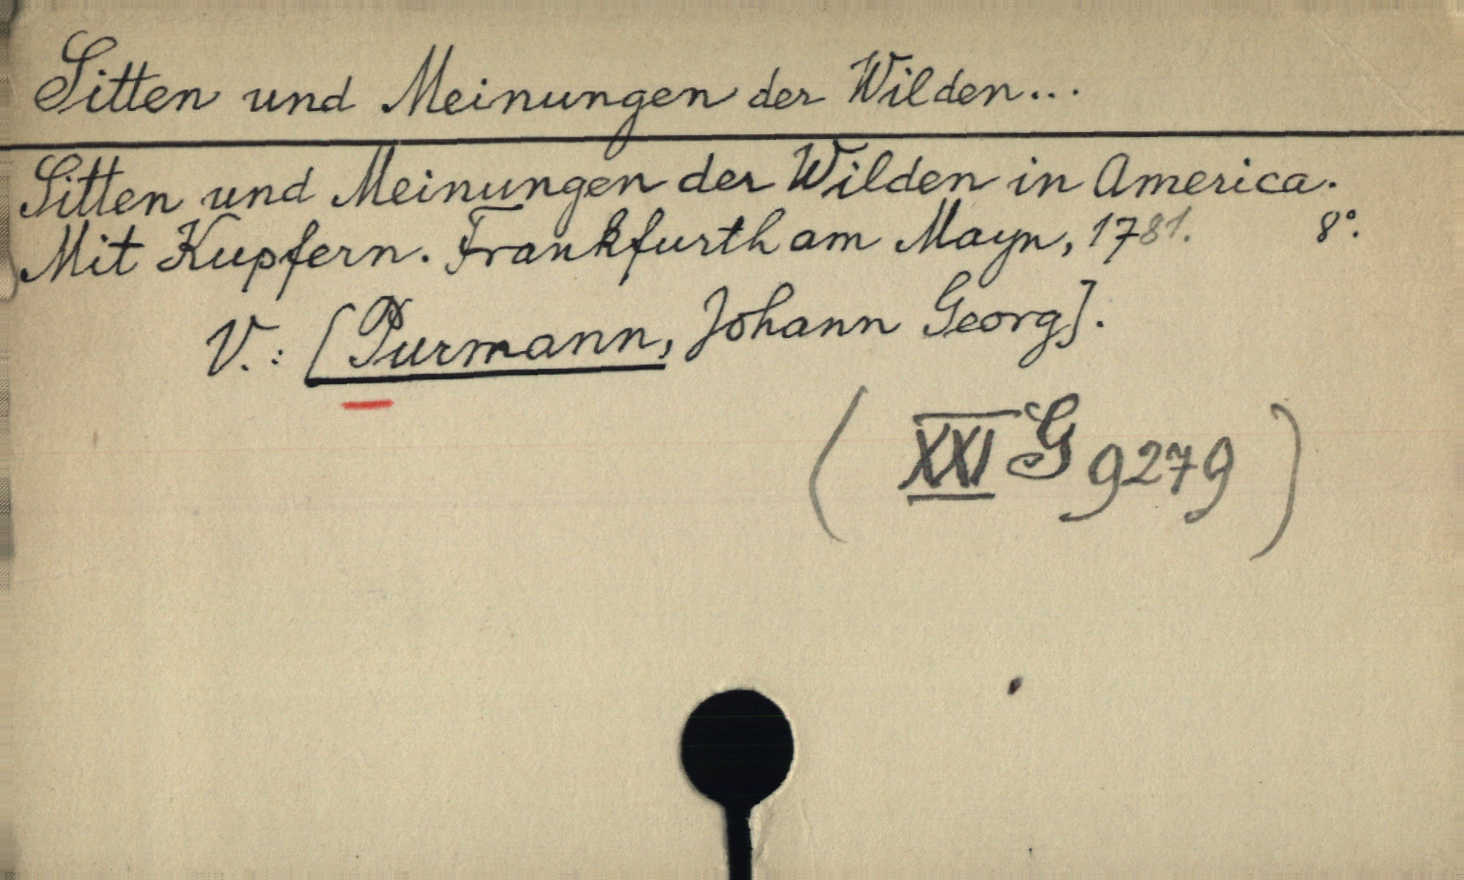 Sitten und Meinungen der Wilden...
Sitten und Meinungen der Wilden in America.
Mit Kupfern. Frankfurth am Mayn, 1781. 8°.
V.: [Purmann, Johann Georg].
(XXI G 9279)